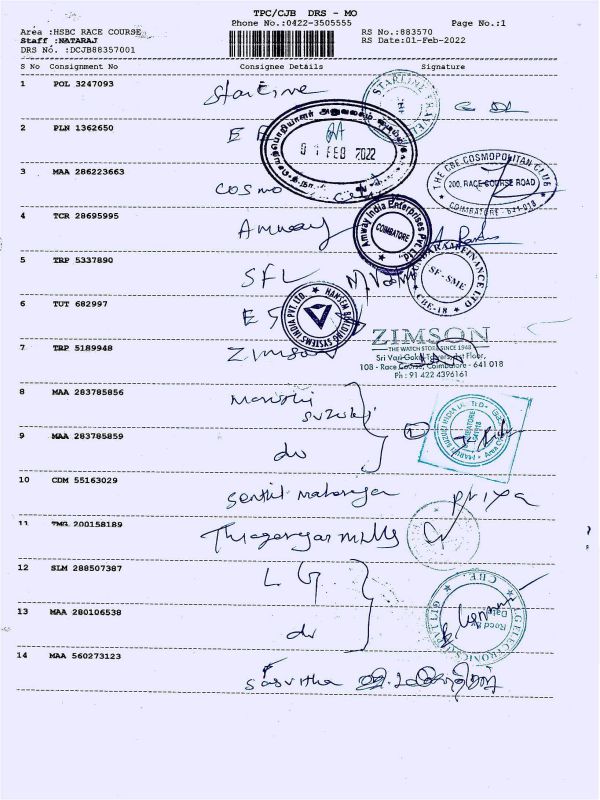 TPC/CJB DRS - MO
Phone No.:0422-3505555 Page No.:1
Area :HSBC RACE COURSE RS No.:883570
Staff :NATARAJ RS Date:01-Feb-2022
DRS No. :DCJB88357001
S No Consignment No Consignee Details Signature
1 POL 3247093 Starline STARLINE TRAVEL
2 PLN 1362650 E E
01 FEB 2022
3 MAA 286223663 Cosmo THE CBE COSMOPOLITAN CLUB
200, RACE COURSE ROAD
COIMBATORE - 641 018
4 TCR 28695995 Amway Amway India Enterprises Pvt. Ltd. COIMBATORE
5 TRP 5337890 SFL FINANCE LTD SF-SME CBE-18
6 TUT 682997 E HANSEN BUILDING SYSTEMS INDIA PVT. LTD.
7 TRP 5189948 Zimson ZIMSON
THE WATCH STORE SINCE 1948
Sri Vari Gokul Towers, 1st Floor,
108 - Race Course, Coimbatore - 641 018
Ph : 91 422 4396161
8 MAA 283785856 Maruthi Suzuki
MARUTI SUZUKI INDIA LIMITED COIMBATORE
9 MAA 283785859 do
10 CDM 55163029 Senthil Maharaja Priya
11 TMG 200158189 Thiagarajar Mills
12 SLM 288507387 L G
CBE.
Recd By
Date
13 MAA 280106538 do
14 MAA 560273123 Sasvitha